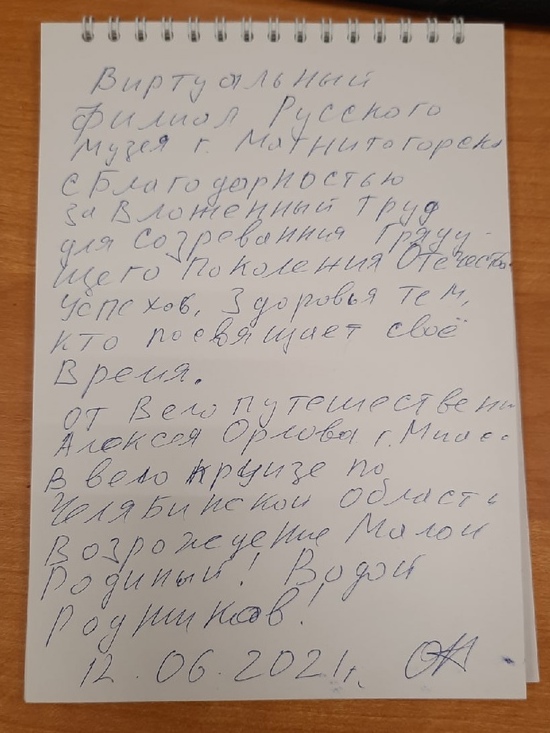 Виртуальный
филиал Русского
музея г. Магнитогорска
с Благодарностью
за Вложенный Труд
для Созревания Гряду-
щего Поколения Отечества
Успехов, Здоровья тем,
кто посвящает своё
Время.
от Велопутешественн
Алексея Орлова г. Миасс
в вело круизе по
Челябинской области
Возрождение Малой
Родины! Водой
Родников!
12.06.2021г.